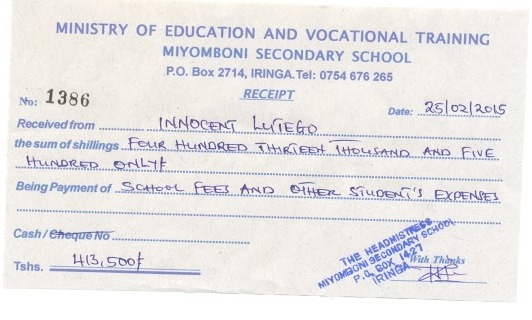 MINISTRY OF EDUCATION AND VOCATIONAL TRAINING
MIYOMBONI SECONDARY SCHOOL
P.O. Box 2714, IRINGA.Tel: 0754 676 265
RECEIPT
No: 1386
Date: 25/02/2015
Received from INNOCENT LUTEGO
the sum of shillings FOUR HUNDRED THIRTEEN THOUSAND AND FIVE
HUNDRED ONLY/
Being Payment of SCHOOL FEES AND OTHER STUDENT'S EXPENSES
Cash / Cheque No
THE HEADMISTRESS
MIYOMBONI SECONDARY SCHOOL
P.O. BOX 1427
IRINGA
With Thanks
Tshs. 413,500/